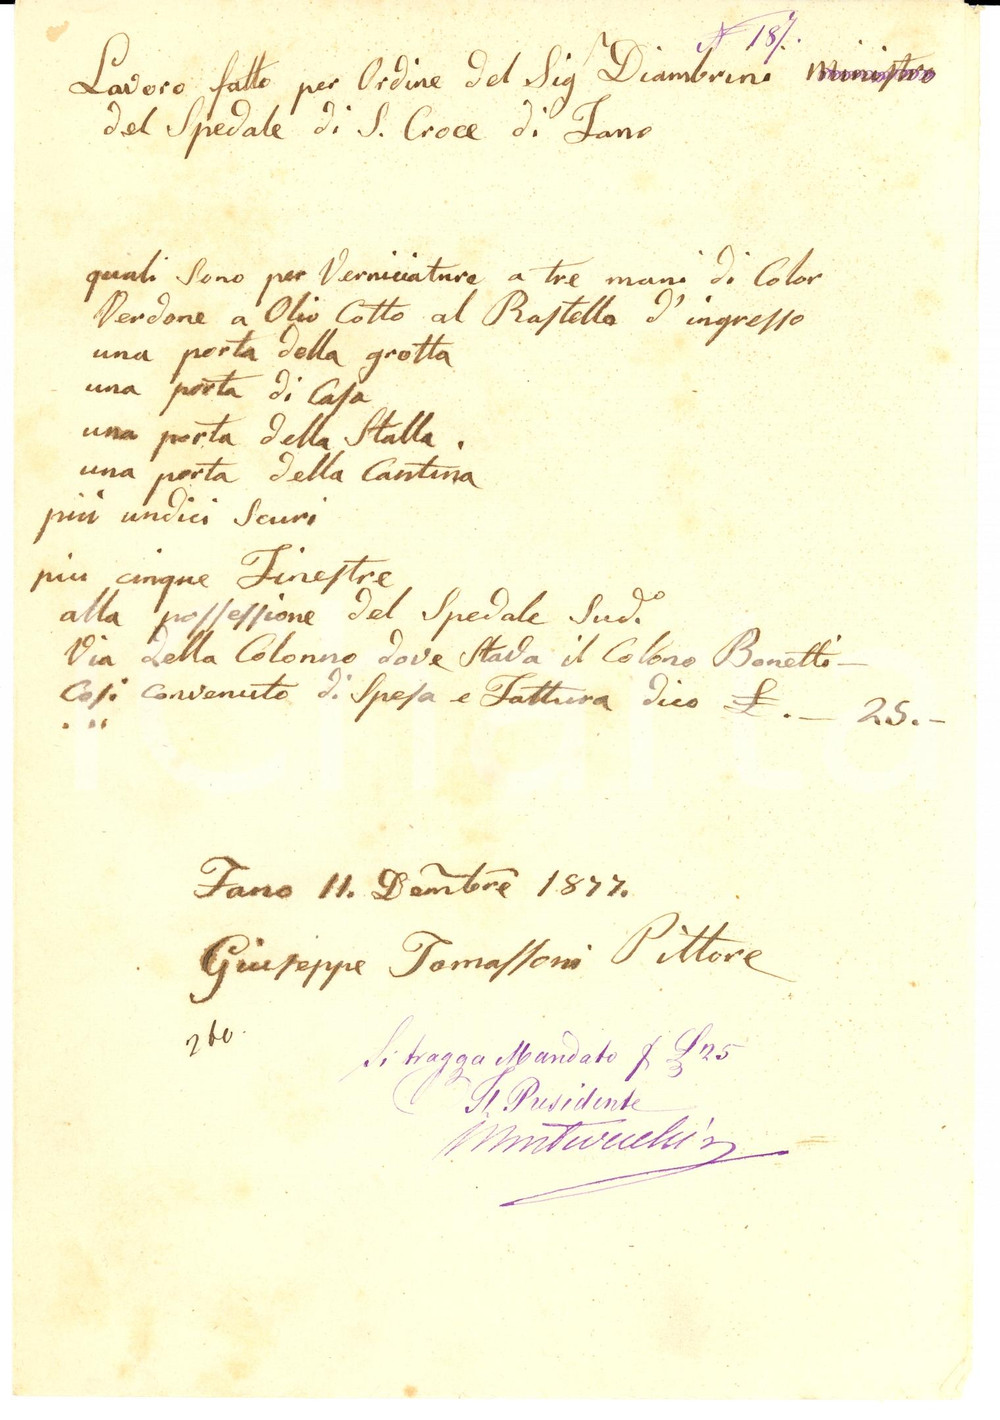 N 187.
Lavoro fatto per Ordine del Sigr Diambrini Ministro
del Spedale di S. Croce di Fano
quali sono per Verniciature a tre mani di Color
Verdone a Olio Cotto al Rastello d'ingresso
una porta della grotta
una porta di Casa
una porta della Stalla.
una porta della Cantina
più undici Scuri
piu cinque Finestre
alla possessione del Spedale Sud.o
Via della Colonno dove Stava il Colono Bonetti —
Cosi convenuto di Spesa e Fattura dico £. — 25. —
Fano 11. Dembre 1877.
Giuseppe Tomassoni Pittore
Si tragga Mandato £ 25
Il Presidente
Montevecchi